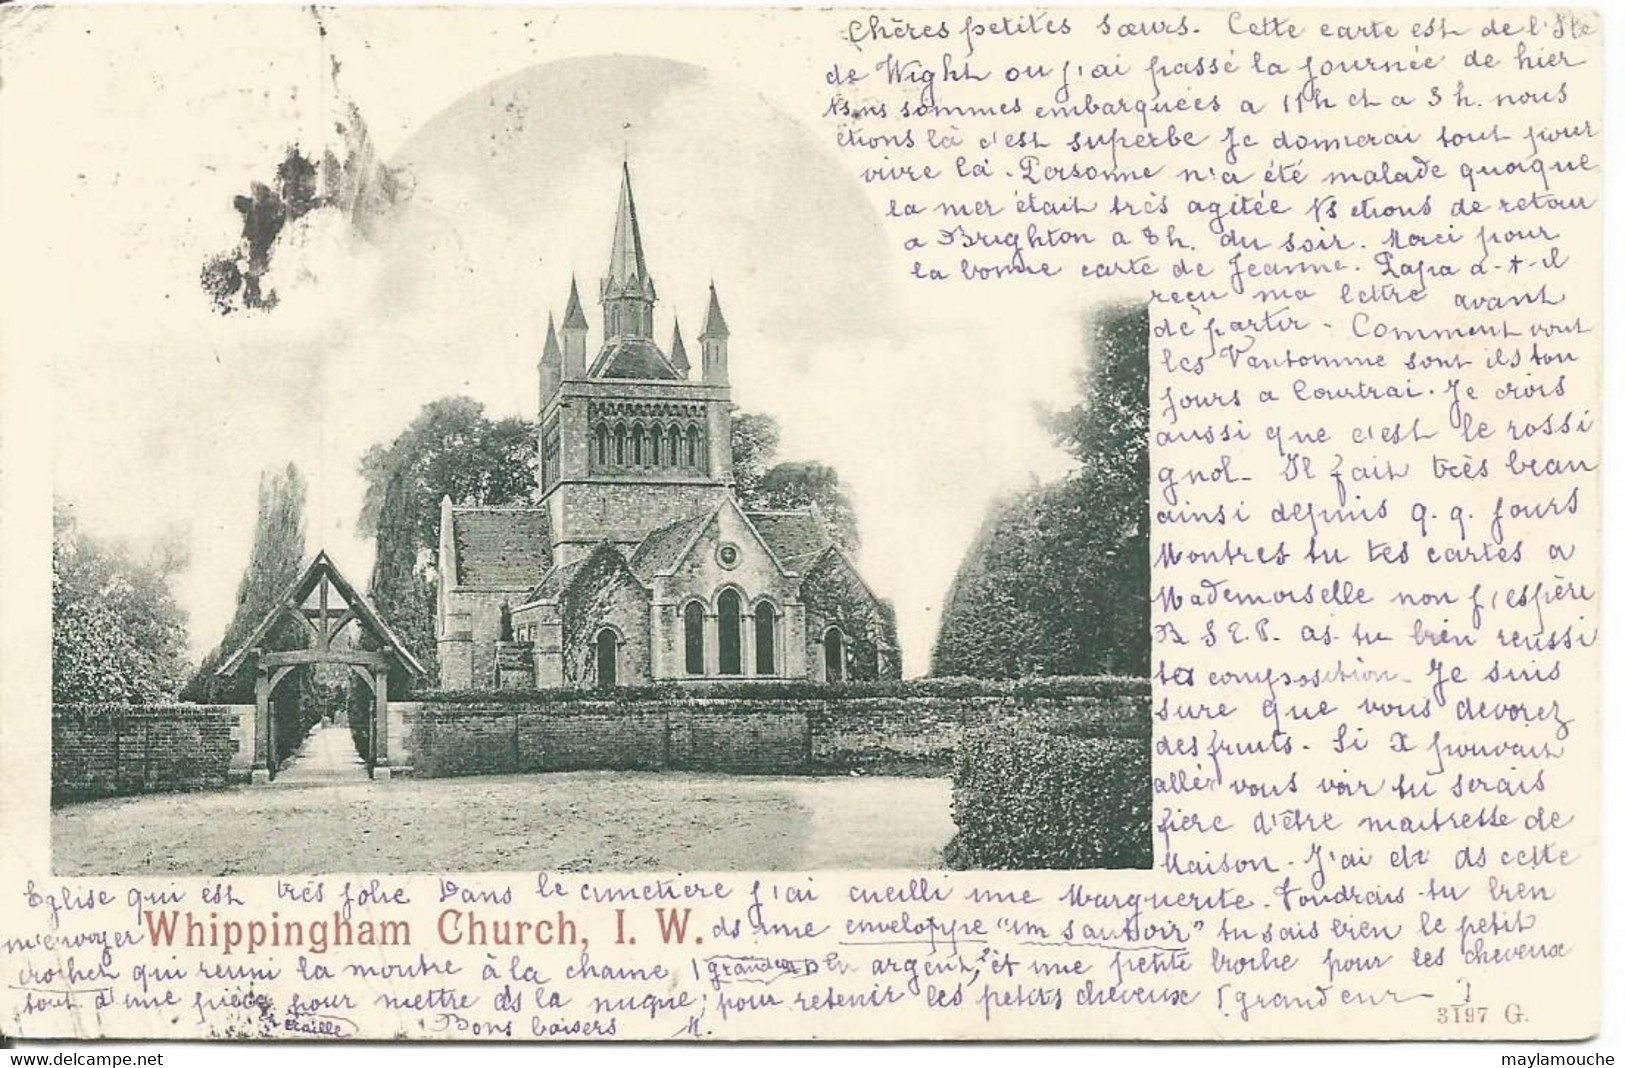 Chères petites sœurs. Cette carte est de l'Ile
de Wight ou j'ai passé la journée de hier
Ns ns sommes embarquées a 11h et a 3 h. nous
étions là c'est superbe Je donnerai tout pour
vivre là. Personne n'a été malade quoique
la mer était très agitée Ns etions de retour
a Brighton a 8 h. du soir. Merci pour
la bonne carte de Jeanne. Papa a-t-il
reçu ma lettre avant
de partir. Comment vont
les Vantomme sont ils tou
jours a Courtrai. Je crois
aussi que c'est le rossi
gnol. Il fait très beau
ainsi depuis q.q. jours
Montres tu tes cartes a
Mademoiselle non j'espère
R S.E.P. as-tu bien reussi
tes composition. Je suis
sure que vous devorez
des fruits. Si X pouvait
aller vous voir tu serais
fiere d'être maitresse de
Maison. J'ai ds cette
Eglise qui est très jolie Dans le cimetiere j'ai cueilli une Marguerite. Voudrais-tu bien
m'envoyer Whippingham Church, I. W. ds une enveloppe "un sautoir" tu sais bien le petit
crochet qui reuni la montre à la chaine (grandeur) en argent, et une petite broche pour les cheveux
tout d'une pièce pour mettre ds la nuque; pour retenir les petits cheveux (grandeur )
écaille Bons baisers M.
3197 G.
maylamouche